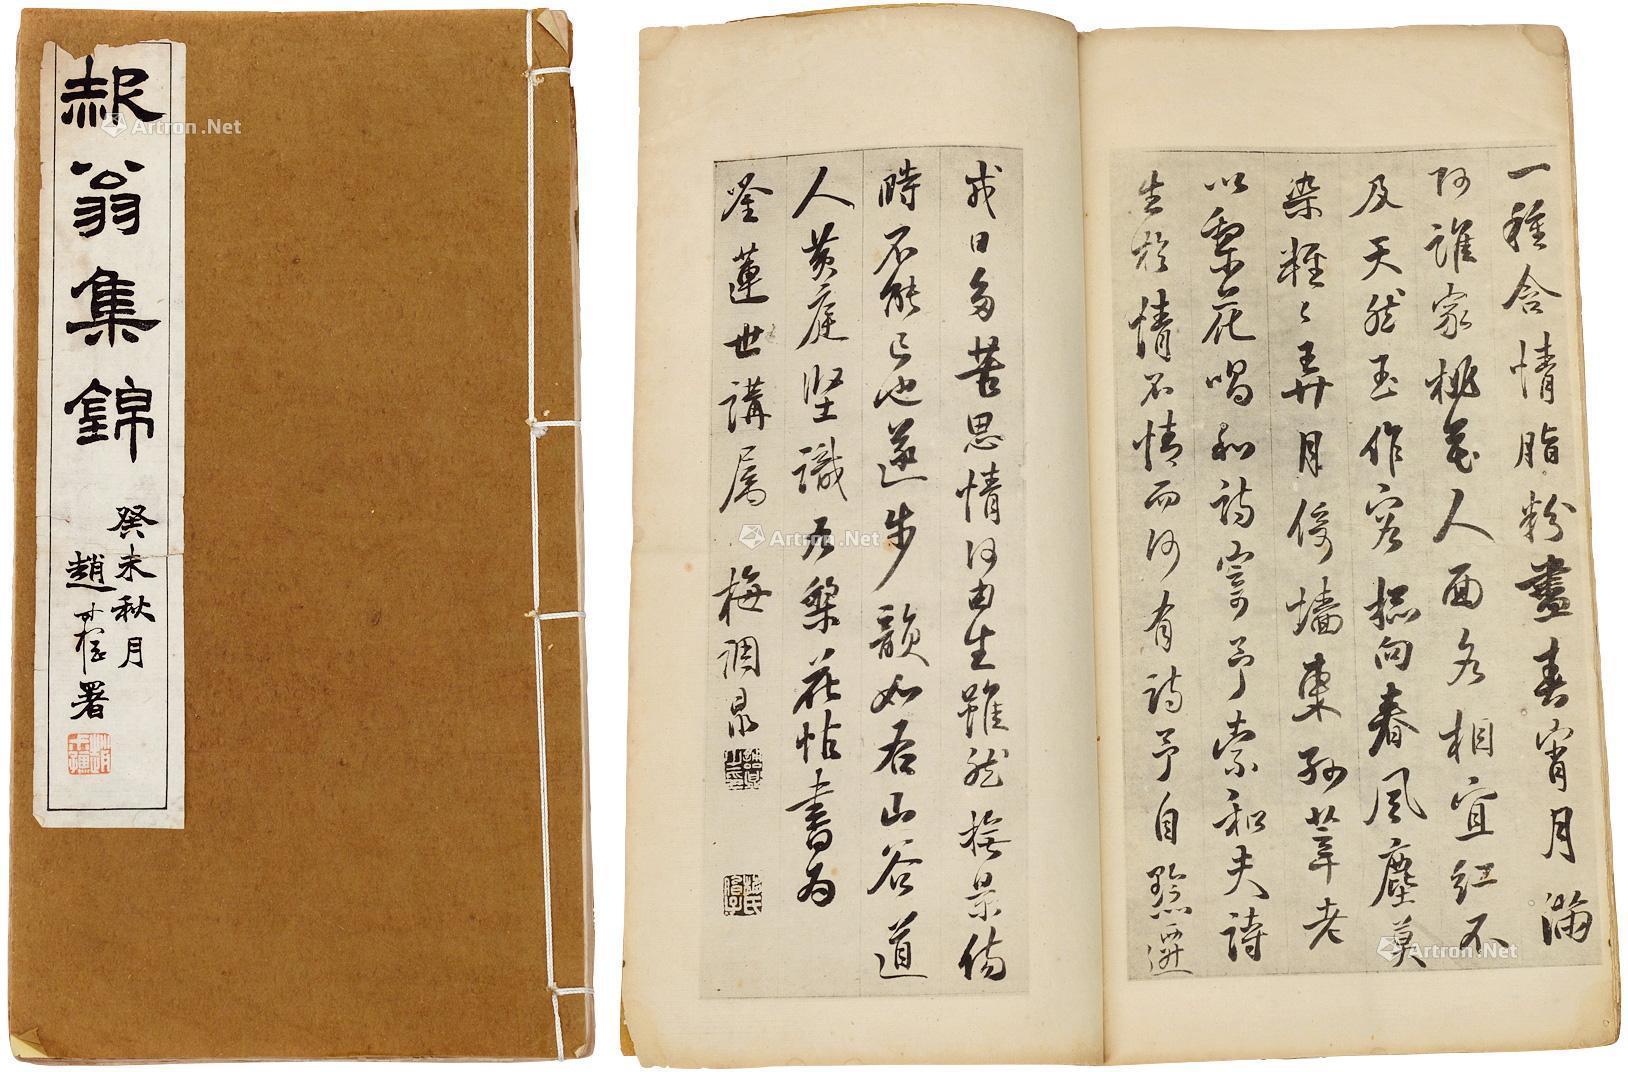 赧翁集錦
癸未秋月
趙
署
一種含情脂粉盡春宵月滿
阿誰家桃花人面各相宜紅不
及天然玉作容摇向春風塵莫
染糚〻弄月傍墻東孙莘老
以梨花唱和詩寄予索和夫詩
生於情不情而何有詩予自黔遷
戎日多苦思情何由生雖然撫景傷
時不能已也遂步韻如右山谷道
人黄庭坚識 右梨花帖書為
荃蓮世講属 梅调鼎
Artron.Net
Artron.Net
Artron.Net